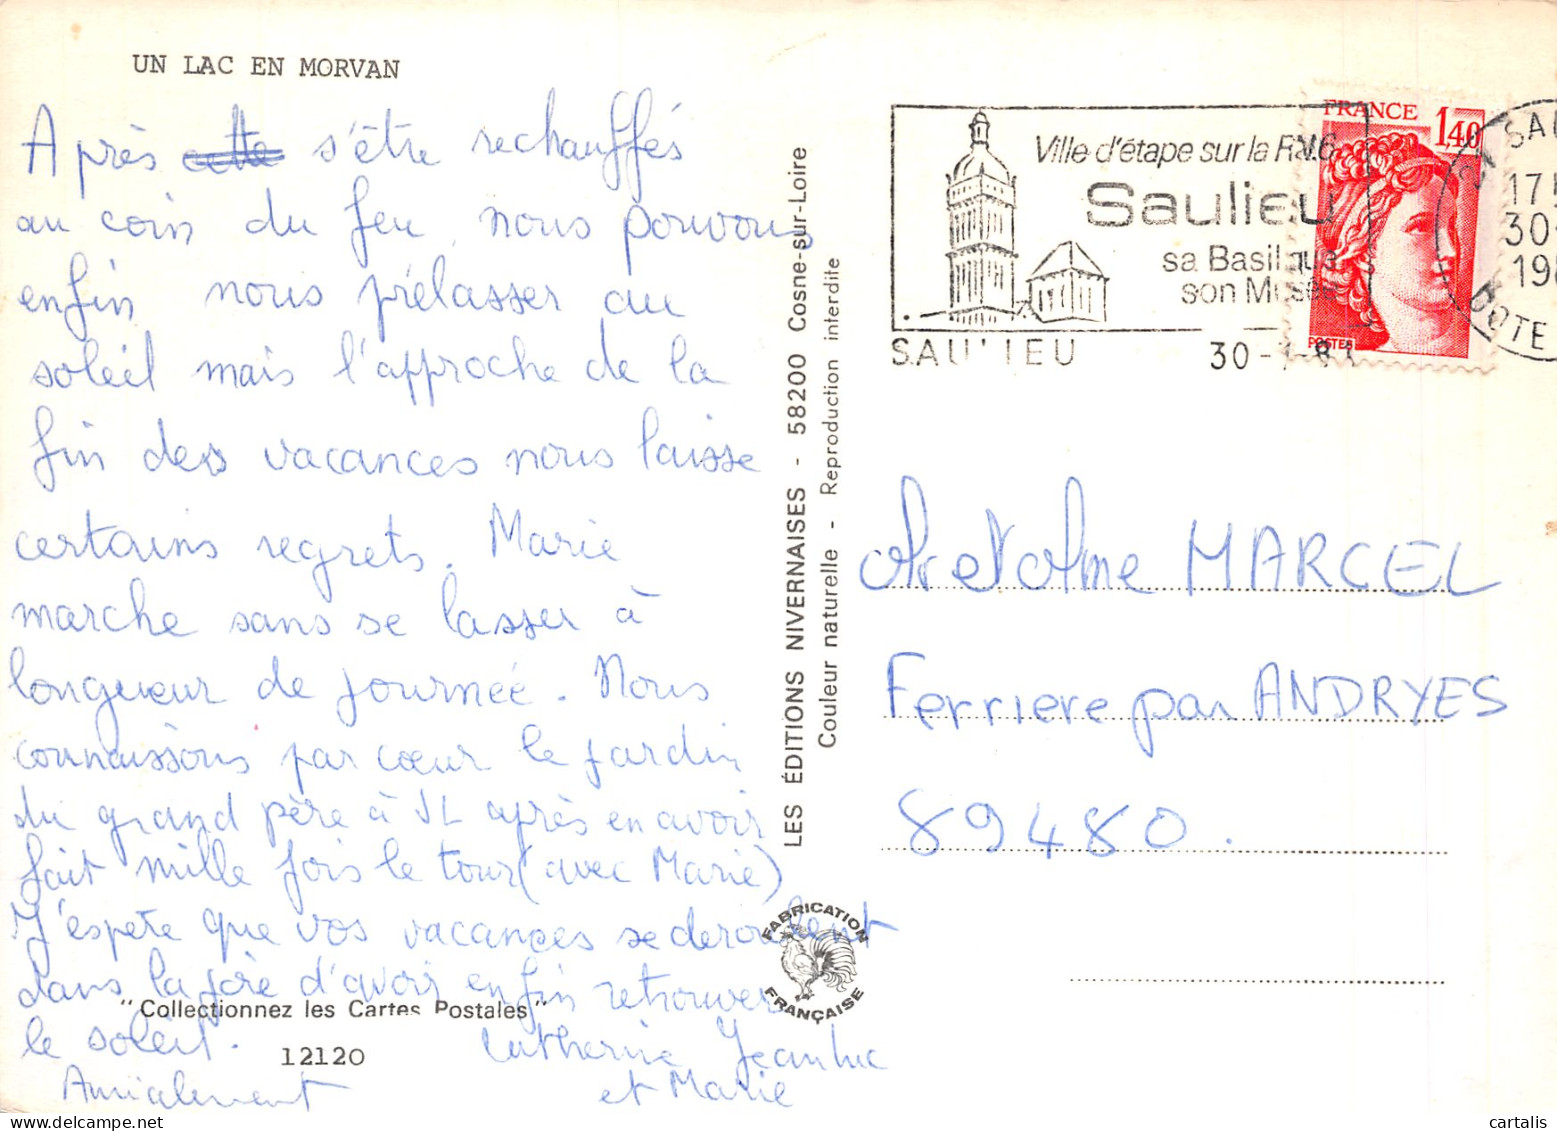 UN LAC EN MORVAN
Après cette s'être rechauffés
au coin du feu, nous pouvons
enfin nous prélasser au
soleil mais l'approche de la
fin des vacances nous laisse
certains regrets. Marie
marche sans se lasser à
longueur de journée. Nous
connaissons par cœur le jardin
du grand père à JL après en avoir
fait mille fois le tour (avec Marie)
J'espère que vos vacances se deroulent
dans la joie d'avoir enfin retrouver
le soleil.
Amicalement
Catherine Jeanluc
et Marie
"Collectionnez les Cartes Postales"
12120
LES ÉDITIONS NIVERNAISES - 58200 Cosne-sur-Loire
Couleur naturelle - Reproduction interdite
FABRICATION
FRANÇAISE
Ville d'étape sur la R.N.6
Saulieu
sa Basilique
son Musée
SAU'IEU
30-
FRANCE 1,40
POSTES
21 SAU
17
30-
198
COTE
Mr et Mme MARCEL
Ferriere par ANDRYES
89480.
cartalis